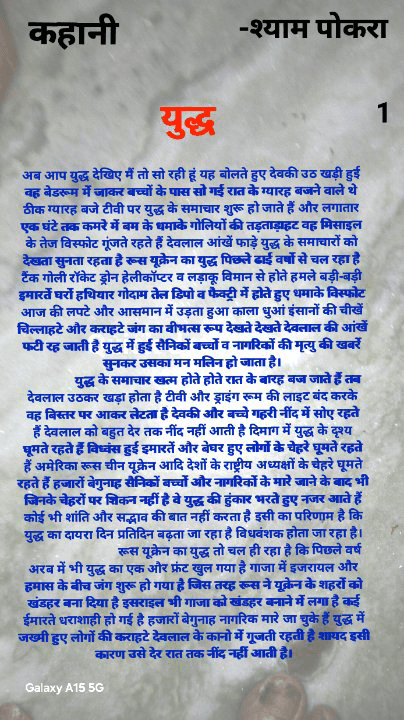 कहानी -श्याम पोकरा
युद्ध
1
अब आप युद्ध देखिए मैं तो सो रही हूं यह बोलते हुए देवकी उठ खड़ी हुई
वह बेडरूम में जाकर बच्चों के पास सो गई रात के ग्यारह बजने वाले थे
ठीक ग्यारह बजे टीवी पर युद्ध के समाचार शुरू हो जाते हैं और लगातार
एक घंटे तक कमरे में बम के धमाके गोलियों की तड़तड़ाहट वह मिसाइल
के तेज विस्फोट गूंजते रहते हैं देवलाल आंखें फाड़े युद्ध के समाचारों को
देखता सुनता रहता है रूस यूक्रेन का युद्ध पिछले ढाई वर्षों से चल रहा है
टैंक गोली रॉकेट ड्रोन हेलीकॉप्टर व लड़ाकू विमान से होते हमले बड़ी-बड़ी
इमारतें घरों हथियार गोदाम तेल डिपो व फैक्ट्री में होते हुए धमाके विस्फोट
आज की लपटे और आसमान में उड़ता हुआ काला धुआं इंसानों की चीखें
चिल्लाहटे और कराहटे जंग का वीभत्स रूप देखते देखते देवलाल की आंखें
फटी रह जाती है युद्ध में हुई सैनिकों बच्चों व नागरिकों की मृत्यु की खबरें
सुनकर उसका मन मलिन हो जाता है।
युद्ध के समाचार खत्म होते होते रात के बारह बज जाते हैं तब
देवलाल उठकर खड़ा होता है टीवी और ड्राइंग रूम की लाइट बंद करके
वह बिस्तर पर आकर लेटता है देवकी और बच्चे गहरी नींद में सोए रहते
हैं देवलाल को बहुत देर तक नींद नहीं आती है दिमाग में युद्ध के दृश्य
घूमते रहते हैं विध्वंस हुई इमारतें और बेघर हुए लोगों के चेहरे घूमते रहते
हैं अमेरिका रूस चीन यूक्रेन आदि देशों के राष्ट्रीय अध्यक्षों के चेहरे घूमते
रहते हैं हजारों बेगुनाह सैनिकों बच्चों और नागरिकों के मारे जाने के बाद भी
जिनके चेहरों पर शिकन नहीं है वे युद्ध की हुंकार भरते हुए नजर आते हैं
कोई भी शांति और सद्भाव की बात नहीं करता है इसी का परिणाम है कि
युद्ध का दायरा दिन प्रतिदिन बढ़ता जा रहा है विधवंशक होता जा रहा है।
रूस यूक्रेन का युद्ध तो चल ही रहा है कि पिछले वर्ष
अरब में भी युद्ध का एक और फ्रंट खुल गया है गाजा में इजरायल और
हमास के बीच जंग शुरू हो गया है जिस तरह रूस ने यूक्रेन के शहरों को
खंडहर बना दिया है इसराइल भी गाजा को खंडहर बनाने में लगा है कई
ईमारते धराशाही हो गई है हजारों बेगुनाह नागरिक मारे जा चुके हैं युद्ध में
जख्मी हुए लोगों की कराहटे देवलाल के कानो में गूजती रहती है शायद इसी
कारण उसे देर रात तक नींद नहीं आती है।
Galaxy A15 5G